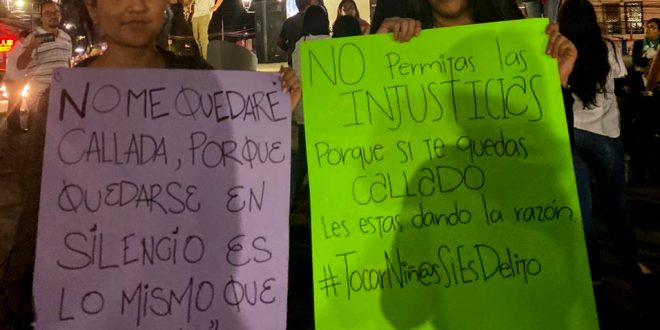 "
NO ME QUEDARÉ
CALLADA, PORQUE
QUEDARSE EN
SILENCIO ES
LO MISMO QUE
"
NO Permitas las
INJUSTICI@S
Porque si te quedas
CALLADO
Les estas dando la razón
#TocarNiñ@sSiEsDelito